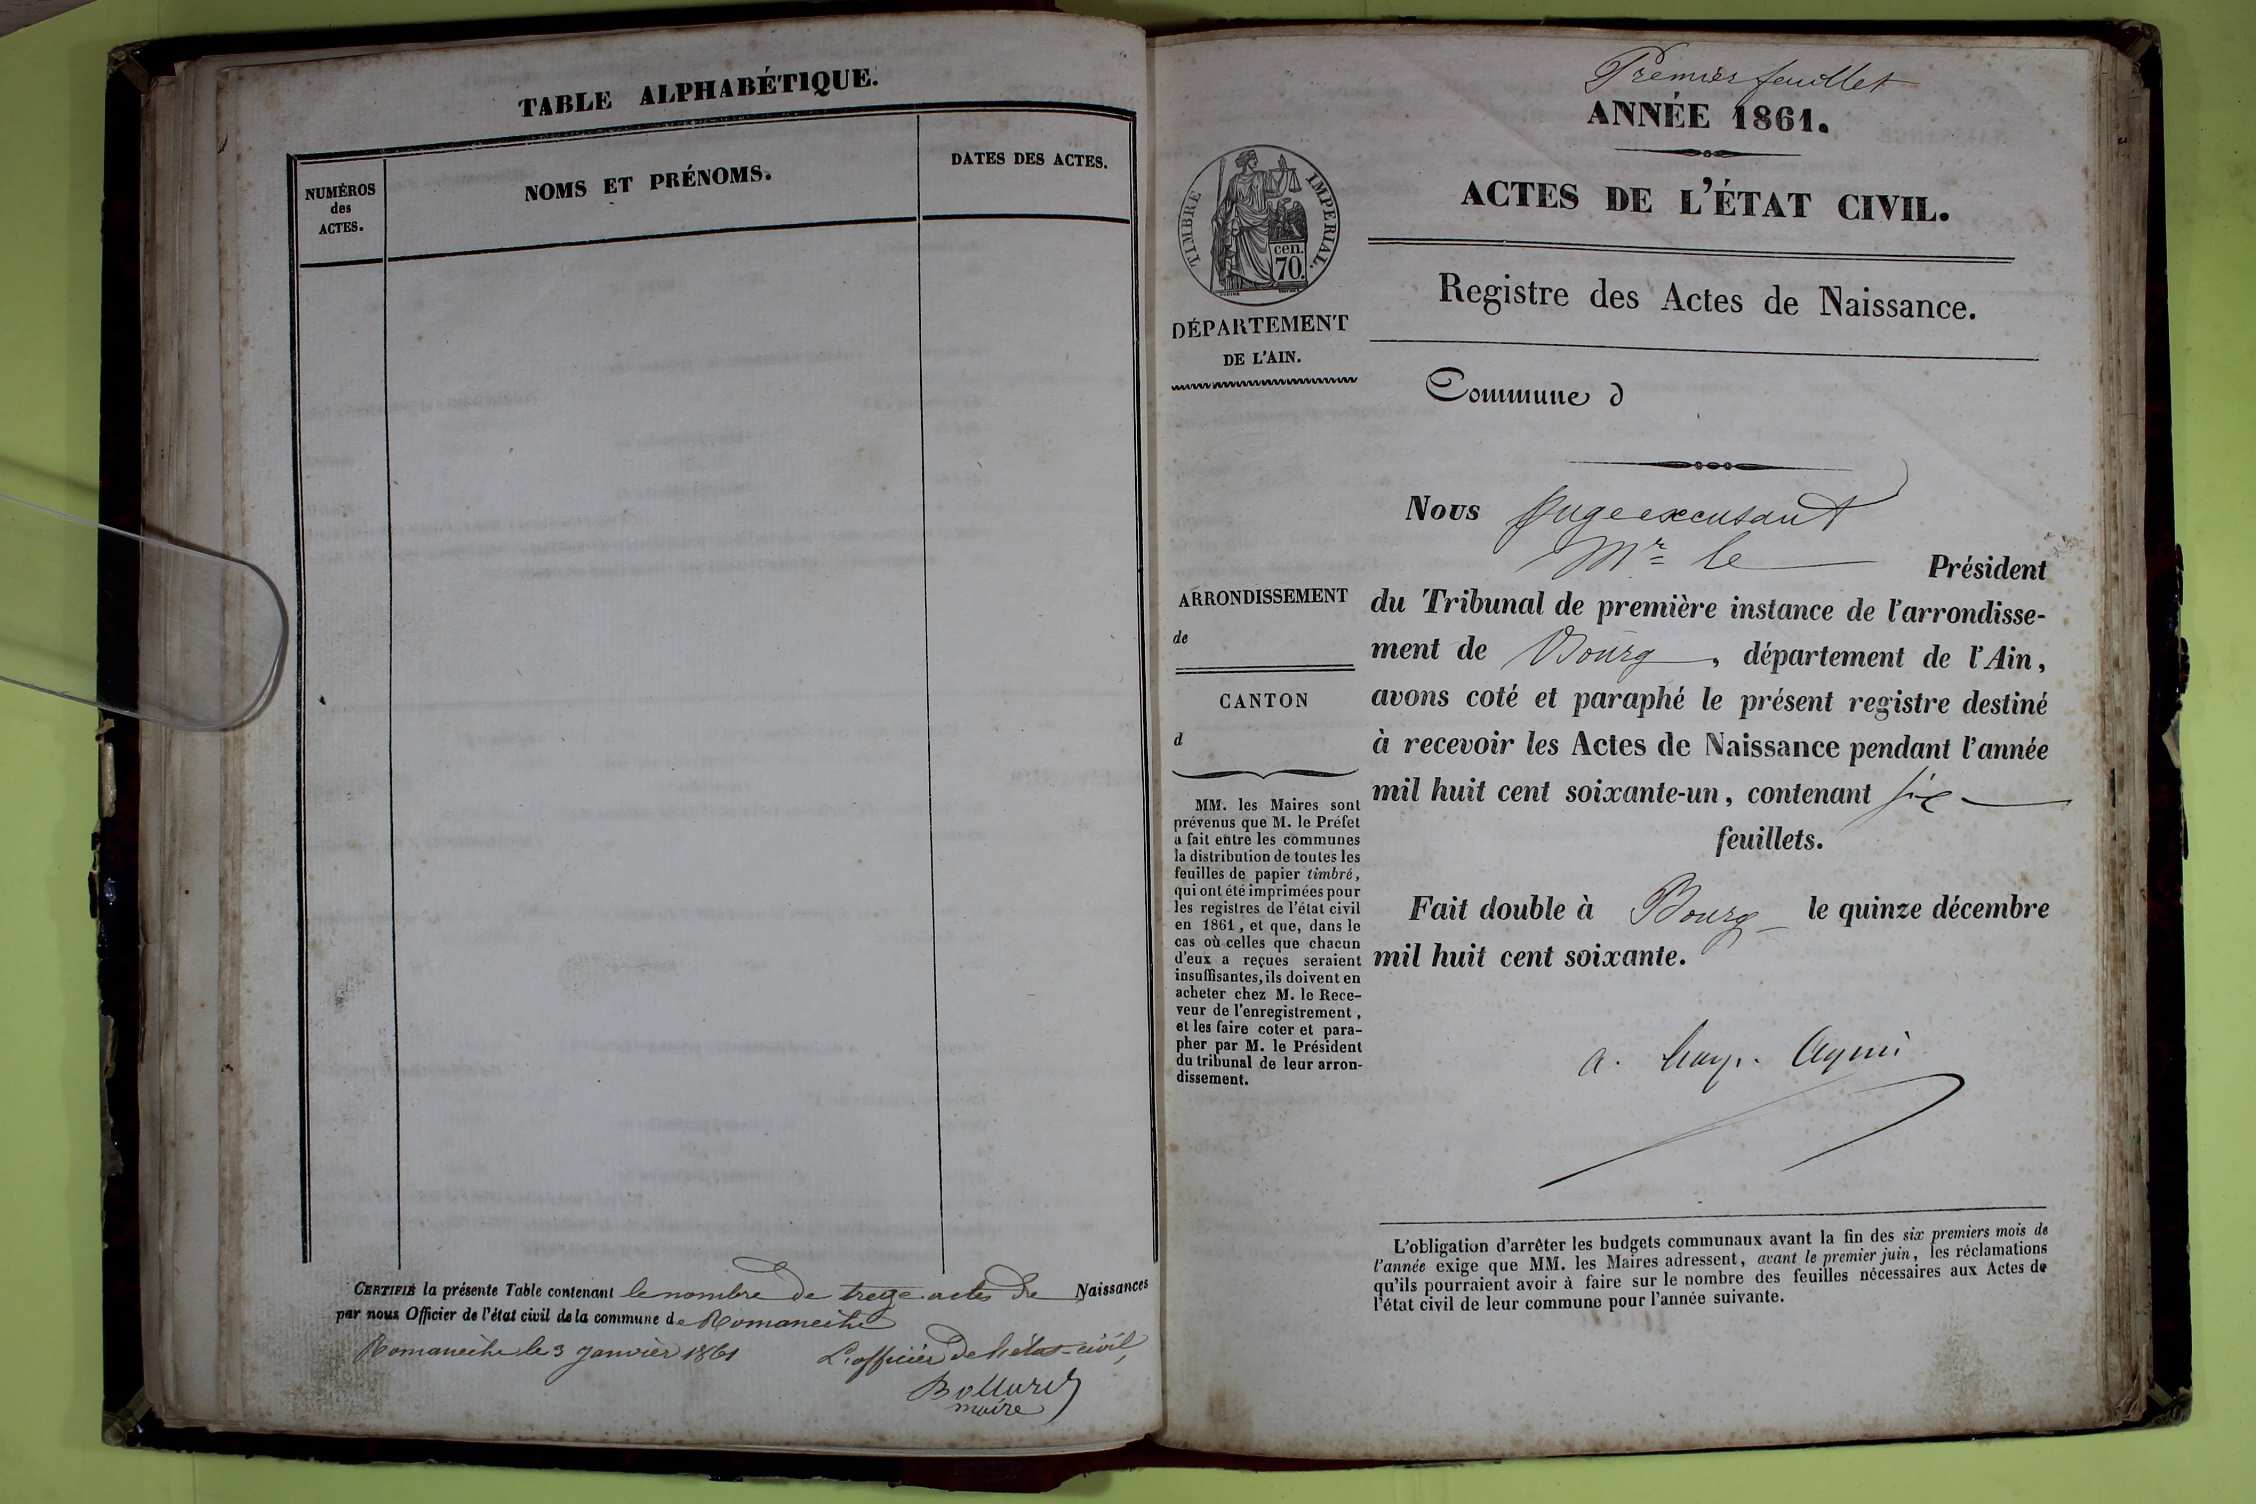 TABLE ALPHABÉTIQUE.
NUMÉROS
des
ACTES.
NOMS ET PRÉNOMS.
DATES DES ACTES.
CERTIFIÉ la présente Table contenant le nombre de treize actes de Naissances
par nous Officier de l'état civil de la commune de Romanèche
Romanèche le 3 janvier 1861 L'officier de l'état-civil,
maire
Premier feuillet
ANNÉE 1861.
ACTES DE L'ÉTAT CIVIL.
Registre des Actes de Naissance.
TIMBRE IMPERIAL.
cen.
70.
DÉPARTEMENT
DE L'AIN.
Commune d
Nous Juge excusant
Mr le Président
du Tribunal de première instance de l'arrondisse-
ment de Bourg, département de l'Ain,
avons coté et paraphé le présent registre destiné
à recevoir les Actes de Naissance pendant l'année
mil huit cent soixante-un, contenant six
feuillets.
Fait double à Bourg le quinze décembre
mil huit cent soixante.
ARRONDISSEMENT
de
CANTON
d
MM. les Maires sont
prévenus que M. le Préfet
a fait entre les communes
la distribution de toutes les
feuilles de papier timbré,
qui ont été imprimées pour
les registres de l'état civil
en 1861, et que, dans le
cas où celles que chacun
d'eux a reçues seraient
insuffisantes, ils doivent en
acheter chez M. le Rece-
veur de l'enregistrement,
et les faire coter et para-
pher par M. le Président
du tribunal de leur arron-
dissement.
L'obligation d'arrêter les budgets communaux avant la fin des six premiers mois de
l'année exige que MM. les Maires adressent, avant le premier juin, les réclamations
qu'ils pourraient avoir à faire sur le nombre des feuilles nécessaires aux Actes de
l'état civil de leur commune pour l'année suivante.